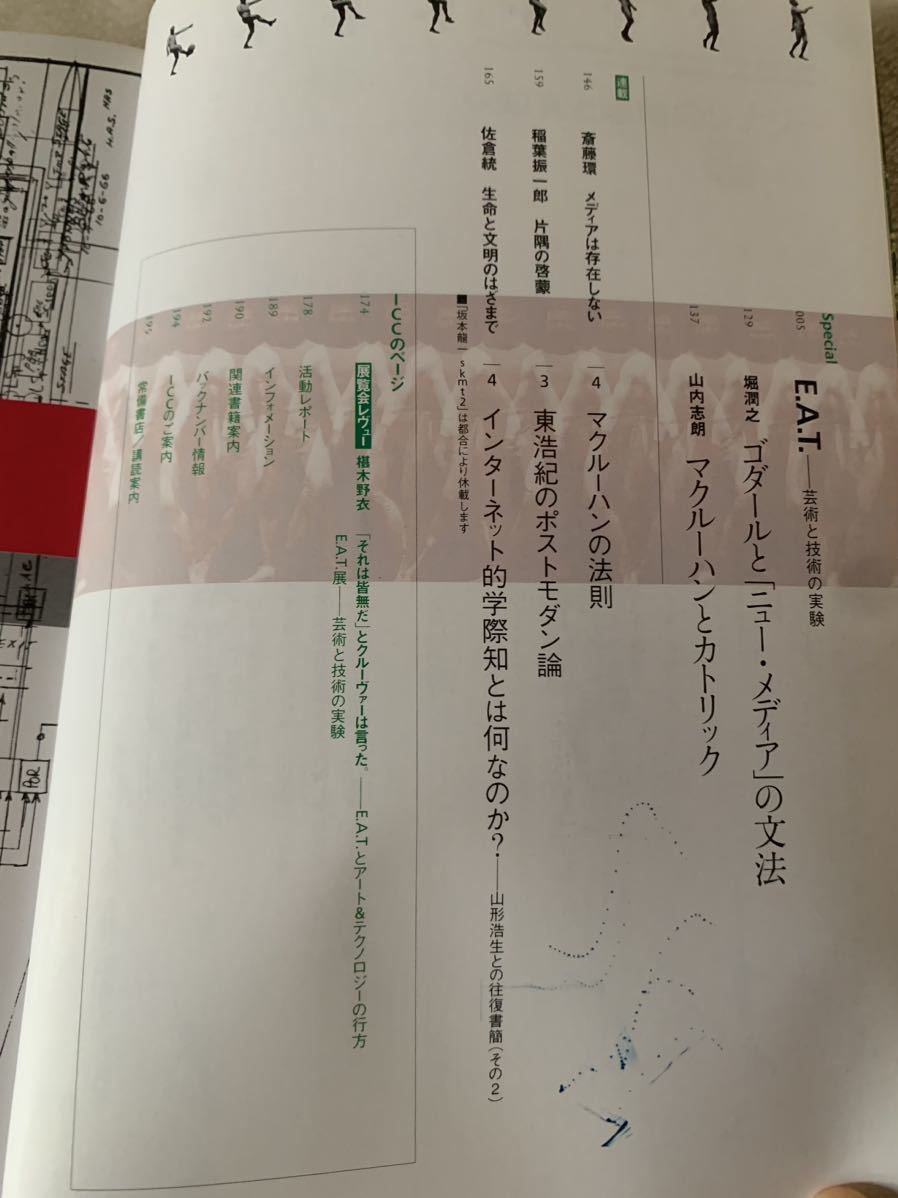 Special
005
E.A.T.——芸術と技術の実験
129
堀潤之 ゴダールと「ニュー・メディア」の文法
137
山内志朗 マクルーハンとカトリック
連載
146
斎藤環 メディアは存在しない
4 マクルーハンの法則
159
稲葉振一郎 片隅の啓蒙
3 東浩紀のポストモダン論
165
佐倉統 生命と文明のはざまで
4 インターネット的学際知とは何なのか?——山形浩生との往復書簡(その2)
■「坂本龍一 skmt2」は都合により休載します
ICCのページ
174
展覧会レヴュー 椹木野衣 「それは皆無だ」とクルーヴァーは言った。——E.A.T.とアート&テクノロジーの行方
E.A.T.展——芸術と技術の実験
178
活動レポート
189
インフォメーション
190
関連書籍案内
192
バックナンバー情報
194
ICCのご案内
195
常備書店/購読案内
10-6-66